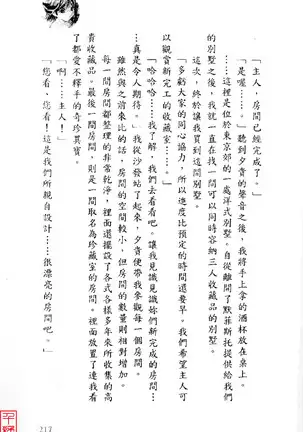 「主人，房間已經完成了。」
「是喔……。」聽到夕貴的聲音之後，我將手上拿的酒杯放在桌上。
……這裡是位於東京郊的一處洋式別墅。自從離開了默菲斯托提供給我們
的別墅之後，我就一直在找一間可以同時容納三人收藏品的別墅。
這次，終於讓我買到這間別墅。
「多虧大家的同心協力，所以進度比預定的時間還要早。我們希望主人可
以觀賞新完工的收藏室……。」
「哈哈哈……我了解，我們去看看吧。讓我見識見識妳們新完成的房間…
…真是令人期待。」我從沙發站了起來，夕貴便帶我參觀每一個房間。
雖然與之前來比的話，房間的空間較小，但房間的數量則相對增加。
每一間房間都整理的非常乾淨，裡面還擺設了各式各樣多年來所收集的高
貴收藏品。最後一間房間，則是一間取名為珍藏室的房間。裡面放置了連我看
了都愛不釋手的奇珍異寶。
「啊……主人！」
「您看、您看！這是我們所親自設計……很漂亮的房間吧。」
217